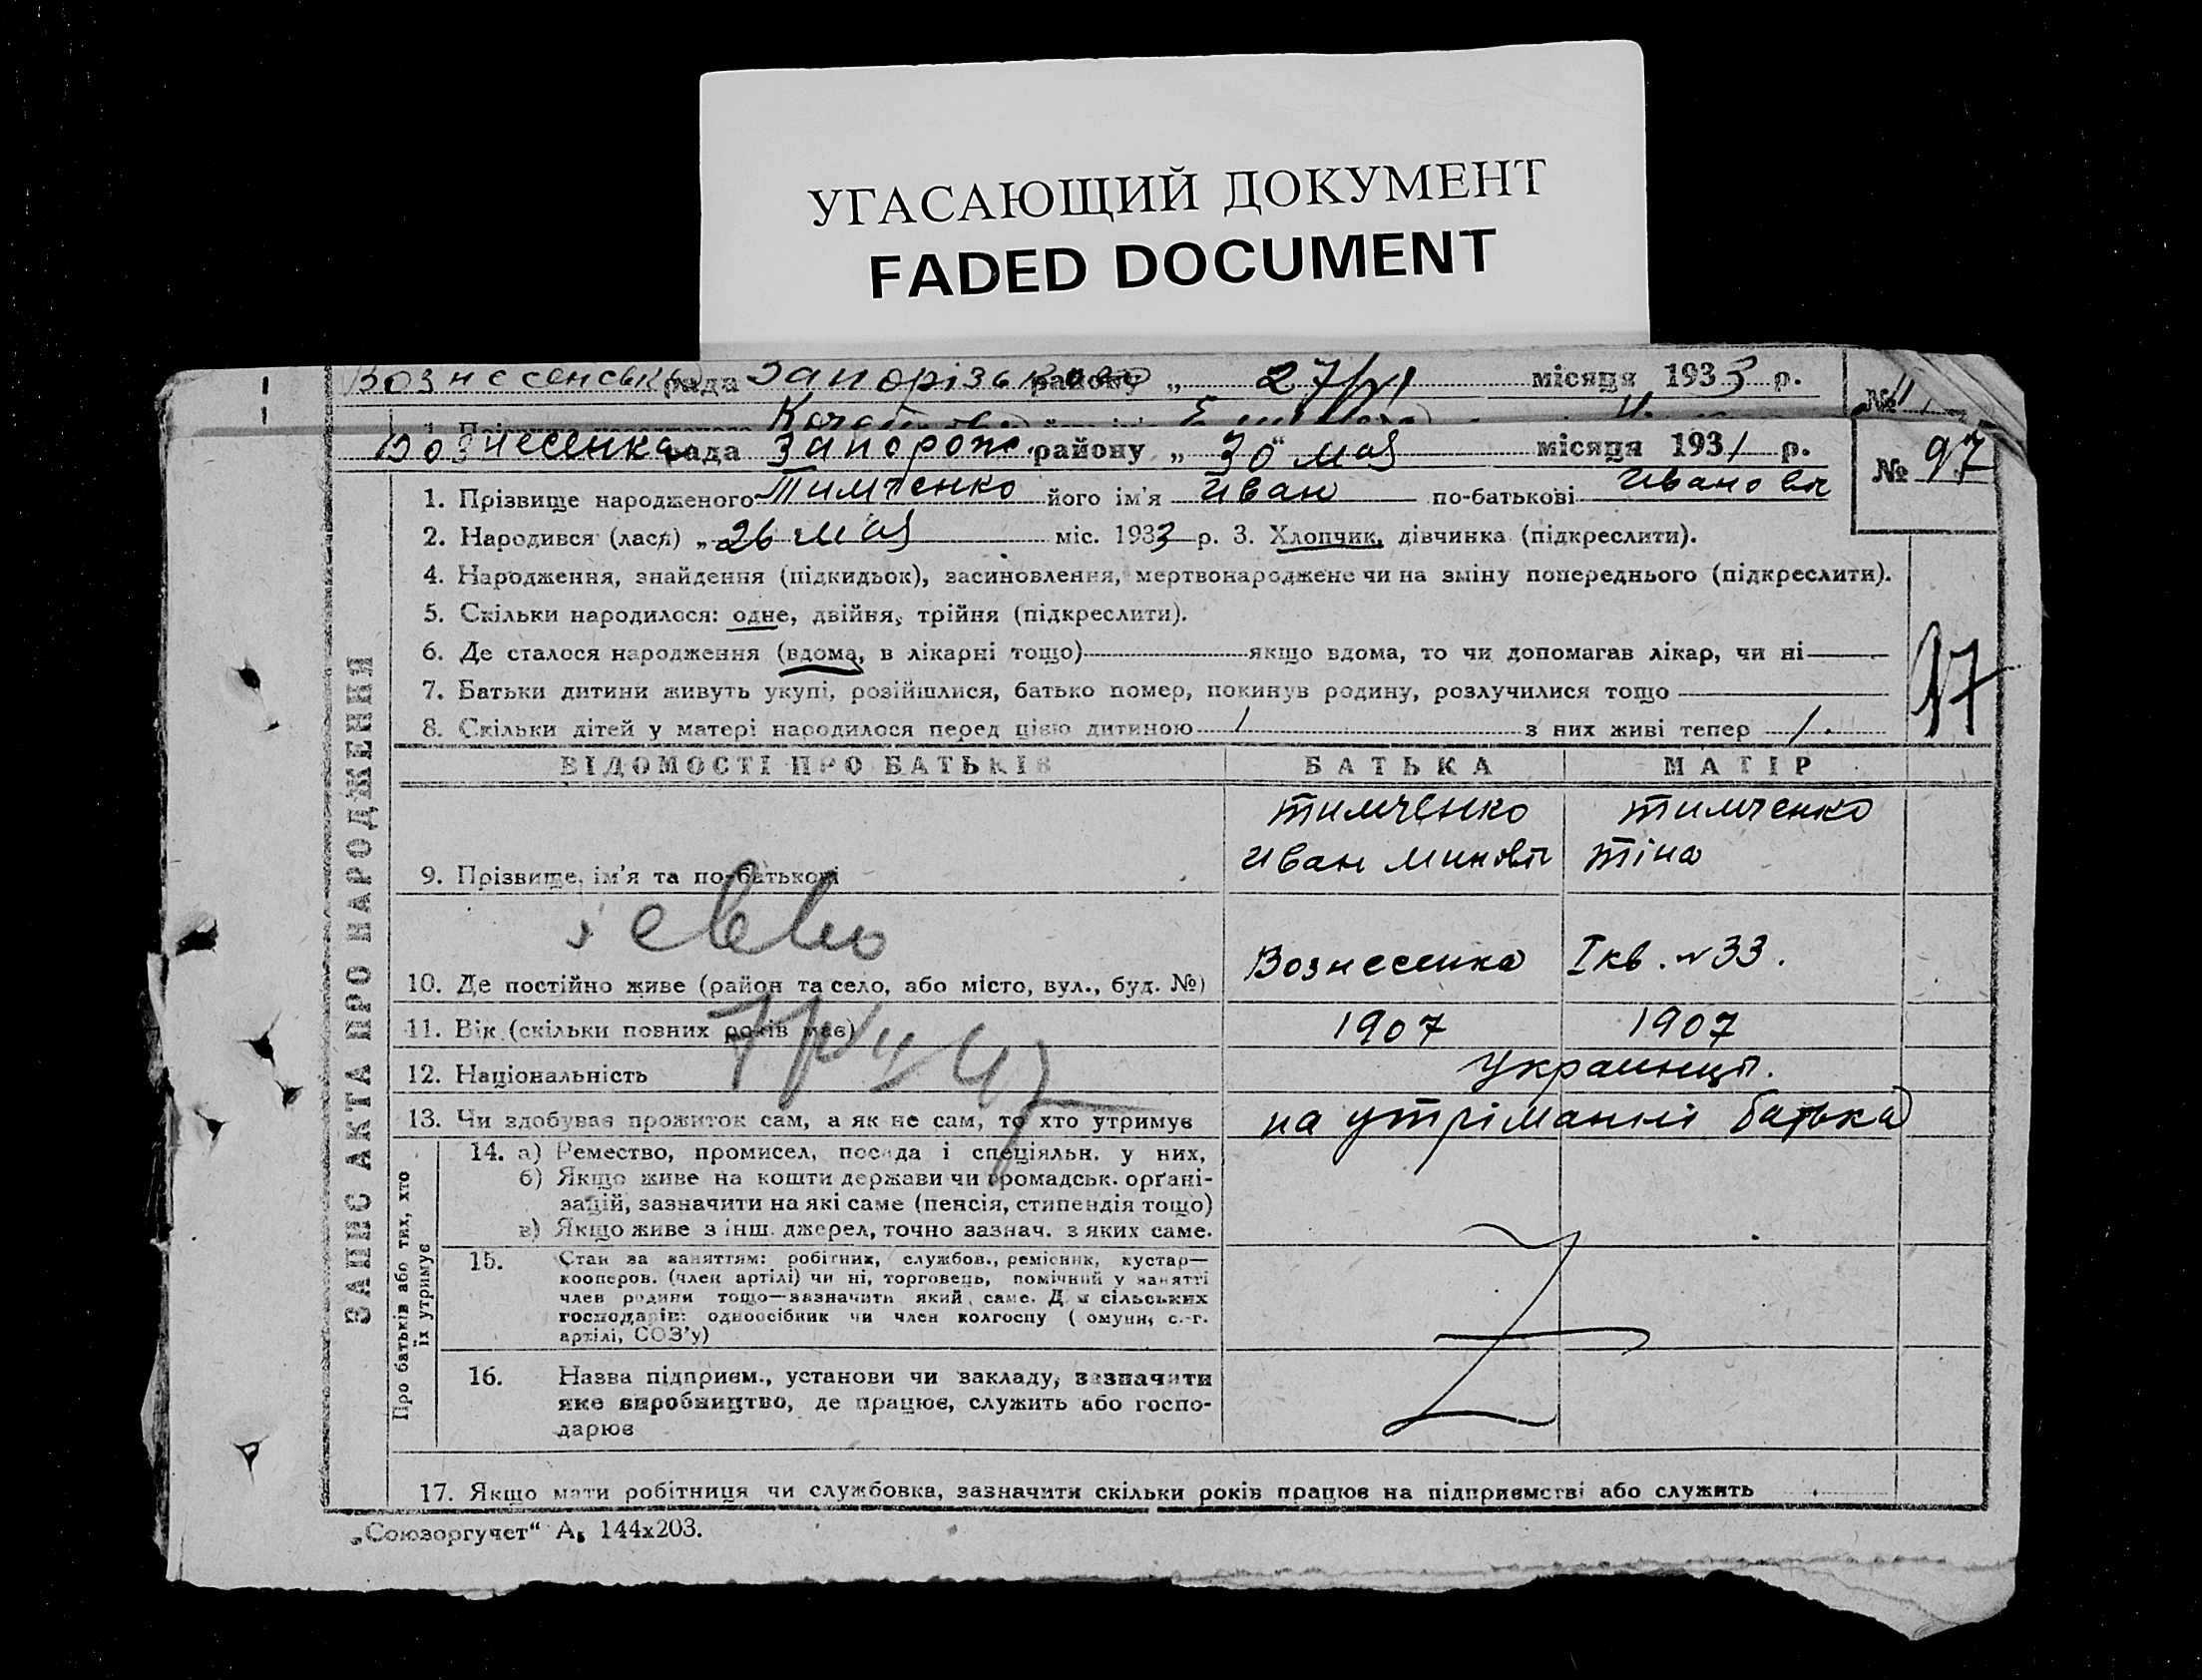 УГАСАЮЩИЙ ДОКУМЕНТ
FADED DOCUMENT
Вознесенська рада Запорізького району „ 27/VI місяця 1933 р.
№
Вознесенка рада Запорож. району „ 30 " мая місяця 1931 р.
№ 97
1. Прізвище народженого Тимченко його ім'я Иван по-батькові Иванович
2. Народився (лася) „ 26 мая міс. 1933 р. 3. Хлопчик, дівчинка (підкреслити).
4. Народження, знайдення (підкидьок), засиновлення, мертвонароджене чи на зміну попереднього (підкреслити).
5. Скільки народилося: одне, двійня, трійня (підкреслити).
6. Де сталося народження (вдома, в лікарні тощо) якщо вдома, то чи допомагав лікар, чи ні
7. Батьки дитини живуть укупі, розійшлися, батько помер, покинув родину, розлучилися тощо
97
8. Скільки дітей у матері народилося перед цією дитиною 1 з них живі тепер 1.
ЗАПИС АКТА ПРО НАРОДЖЕННЯ
ВІДОМОСТІ ПРО БАТЬКІВ БАТЬКА МАТІР
Тимченко Тимченко
Иван Минович Тіна
9. Прізвище, ім'я та по-батькові
Вознесенка Iкв. №33.
10. Де постійно живе (район та село, або місто, вул., буд. №)
11. Вік (скільки повних років має) 1907 1907
12. Національність Украинци.
13. Чи здобуває прожиток сам, а як не сам, то хто утримує на утріманні батька
Про батьків або тих, хто
їх утримує
14. а) Ремество, промисел, посада і спеціяльн. у них,
б) Якщо живе на кошти держави чи громадськ. орґані-
зацій, зазначити на які саме (пенсія, стипендія тощо)
в) Якщо живе з інш. джерел, точно зазнач. з яких саме.
15. Стан за заняттям: робітник, службов., ремісник, кустар—
кооперов. (член артілі) чи ні, торговець, помічний у занятті
член родини тощо—зазначити який саме. Для сільських
господарів: одноосібник чи член колгоспу (омуни, с.-г.
артілі, СОЗ'у)
16. Назва підприєм., установи чи закладу, зазначити
яке виробництво, де працює, служить або госпо-
дарює
17. Якщо мати робітниця чи службовка, зазначити скільки років працює на підприємстві або служить
„Союзоргучет“ А₅ 144x203.